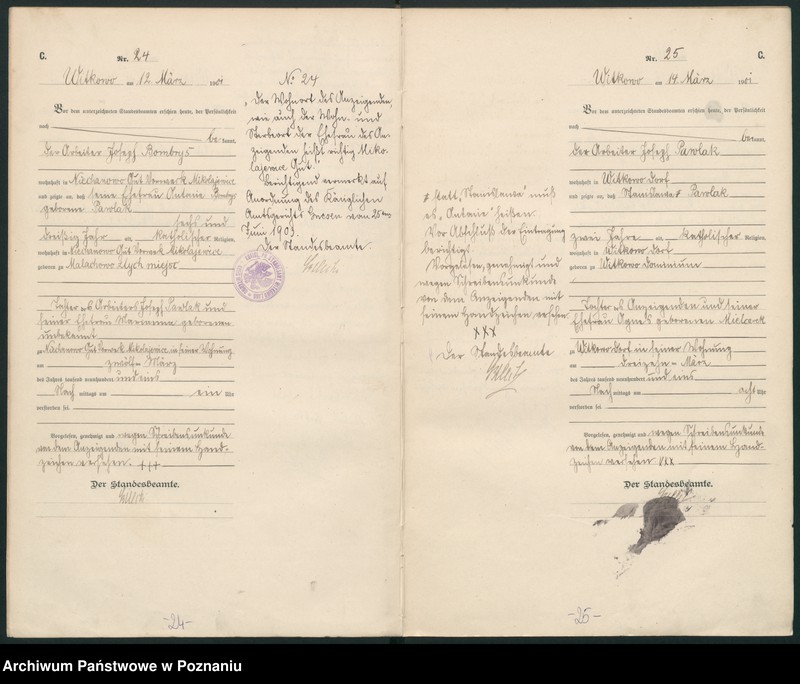 C.
Nr. 24
Witkowo am 12. März 1901
Vor dem unterzeichneten Standesbeamten erschien heute, der Persönlichkeit
nach
be kannt,
der Arbeiter Joseph Bombys
wohnhaft in Nachanowo Gut Vorwerk Mikolajewice
und zeigte an, daß seine Ehefrau Antonie Bombys
geborene Pawlak
sechs und
dreißig Jahr alt, katholischer Religion,
wohnhaft in Nachanowo Gut Vorwerk Mikolajewice
geboren zu Malachowo
Tochter des Arbeiters Joseph Pawlak und
seiner Ehefrau Marianna geborenen
unbekannt
zu Nachanowo Gut Vorwerk Mikolajewice in seiner Wohnung
am zwölften März
des Jahres tausend neunhundert und eins
Nach mittags um ein Uhr
verstorben sei.
Vorgelesen, genehmigt und wegen Schreibensunkunde
von dem Anzeigenden mit seinem Hand-
zeichen versehen. +++
Der Standesbeamte.
No 24
„Der Wohnort des Anzeigenden,
wie auch der Wohn- und
Sterbeort der Ehefrau des An-
zeigenden heißt richtig Miko-
lajewice Gut."
Berichtigend vermerkt auf
Anordnung des Königlichen
Amtsgerichts Gnesen vom 25ten
Juni 1903.
Der Standesbeamte.
-24-
Nr. 25
C.
Witkowo am 14. März 1901
Vor dem unterzeichneten Standesbeamten erschien heute, der Persönlichkeit
nach
be kannt,
der Arbeiter Joseph Pawlak
wohnhaft in Witkowo Dorf
und zeigte an, daß Stanislawa # Pawlak
zwei Jahre alt, katholischer Religion,
wohnhaft in Witkowo Dorf
geboren zu Witkowo Dominium
Tochter des Anzeigenden und seiner
Ehefrau Agnes geborenen
zu Witkowo Dorf in seiner Wohnung
am dreizehnten März
des Jahres tausend neunhundert und eins
Nach mittags um acht Uhr
verstorben sei.
Vorgelesen, genehmigt und wegen Schreibensunkunde
von dem Anzeigenden mit seinem Hand-
zeichen versehen XXX
Der Standesbeamte.
# Statt „Stanislawa" muß
es „Antonie" heißen.
Vor Abschluß der Eintragung
berichtigt.
Vorgelesen, genehmigt und
wegen Schreibensunkunde
von dem Anzeigenden mit
seinem Handzeichen versehen
XXX
Der Standesbeamte
-25-
Archiwum Państwowe w Poznaniu